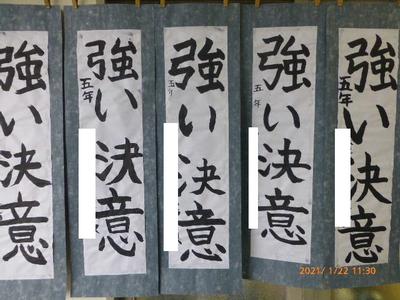 強い決意
五年
強い決意
五年
強い決意
五年
強い決意
五年
強い決意
2021/ 1/22 11:30